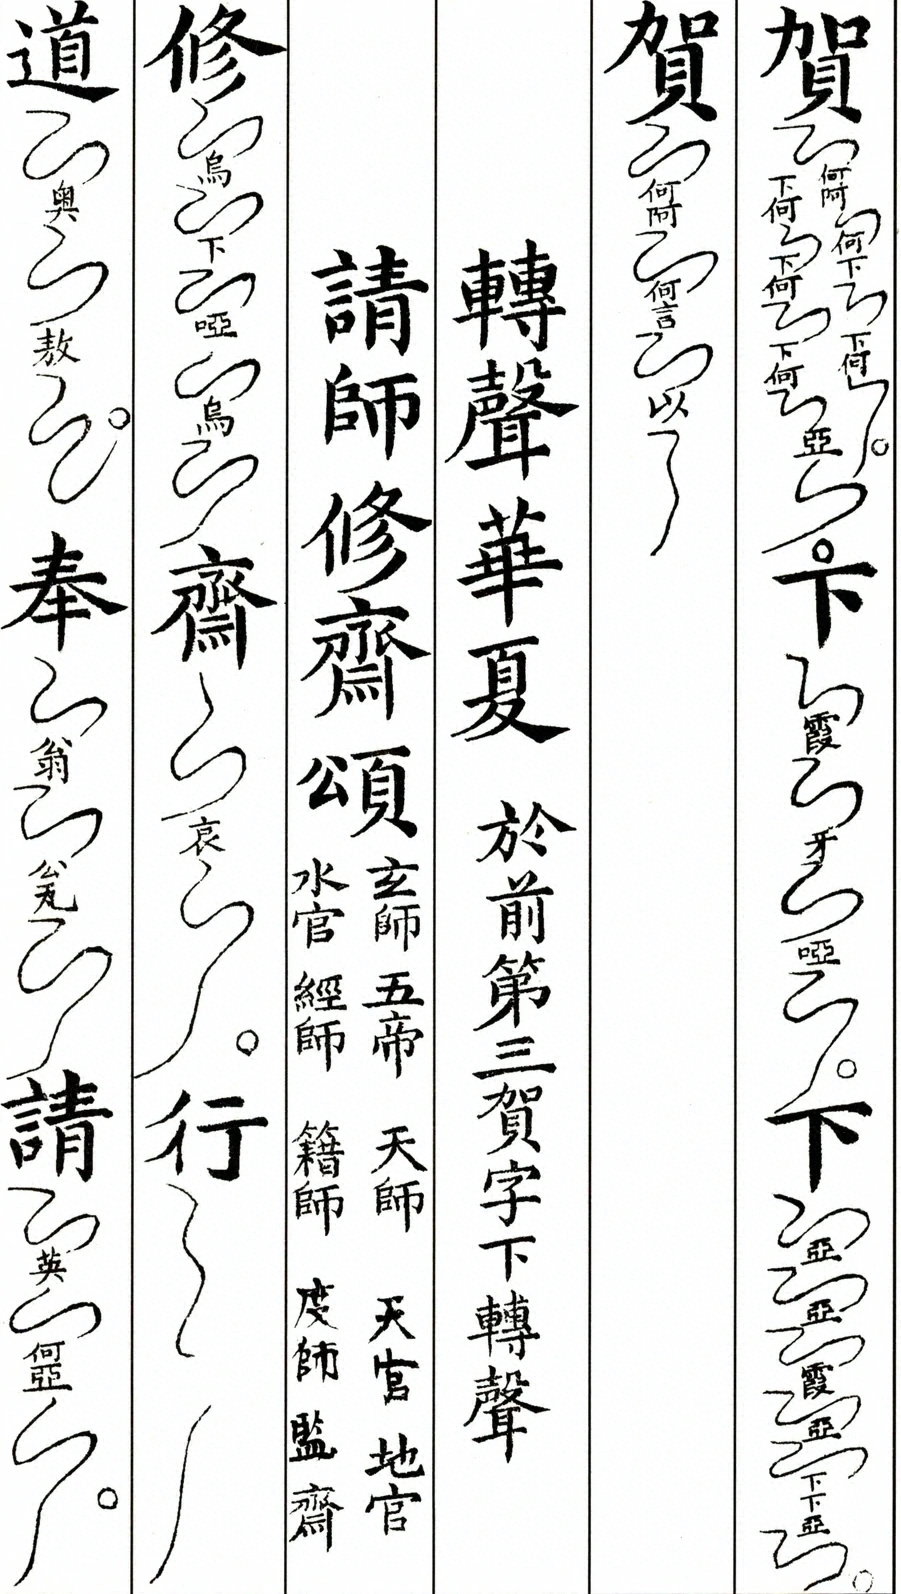 賀何阿何下下何下何下何下何亞下霞牙啞下亞亞霞亞下下亞
賀何阿何言以
轉聲華夏 於前第三賀字下轉聲
請師修齋頌 玄師 五帝 天師 天官 地官
水官 經師 籍師 度師 監齋
修烏下啞烏齋哀行
道奥敖奉翁請英何亞